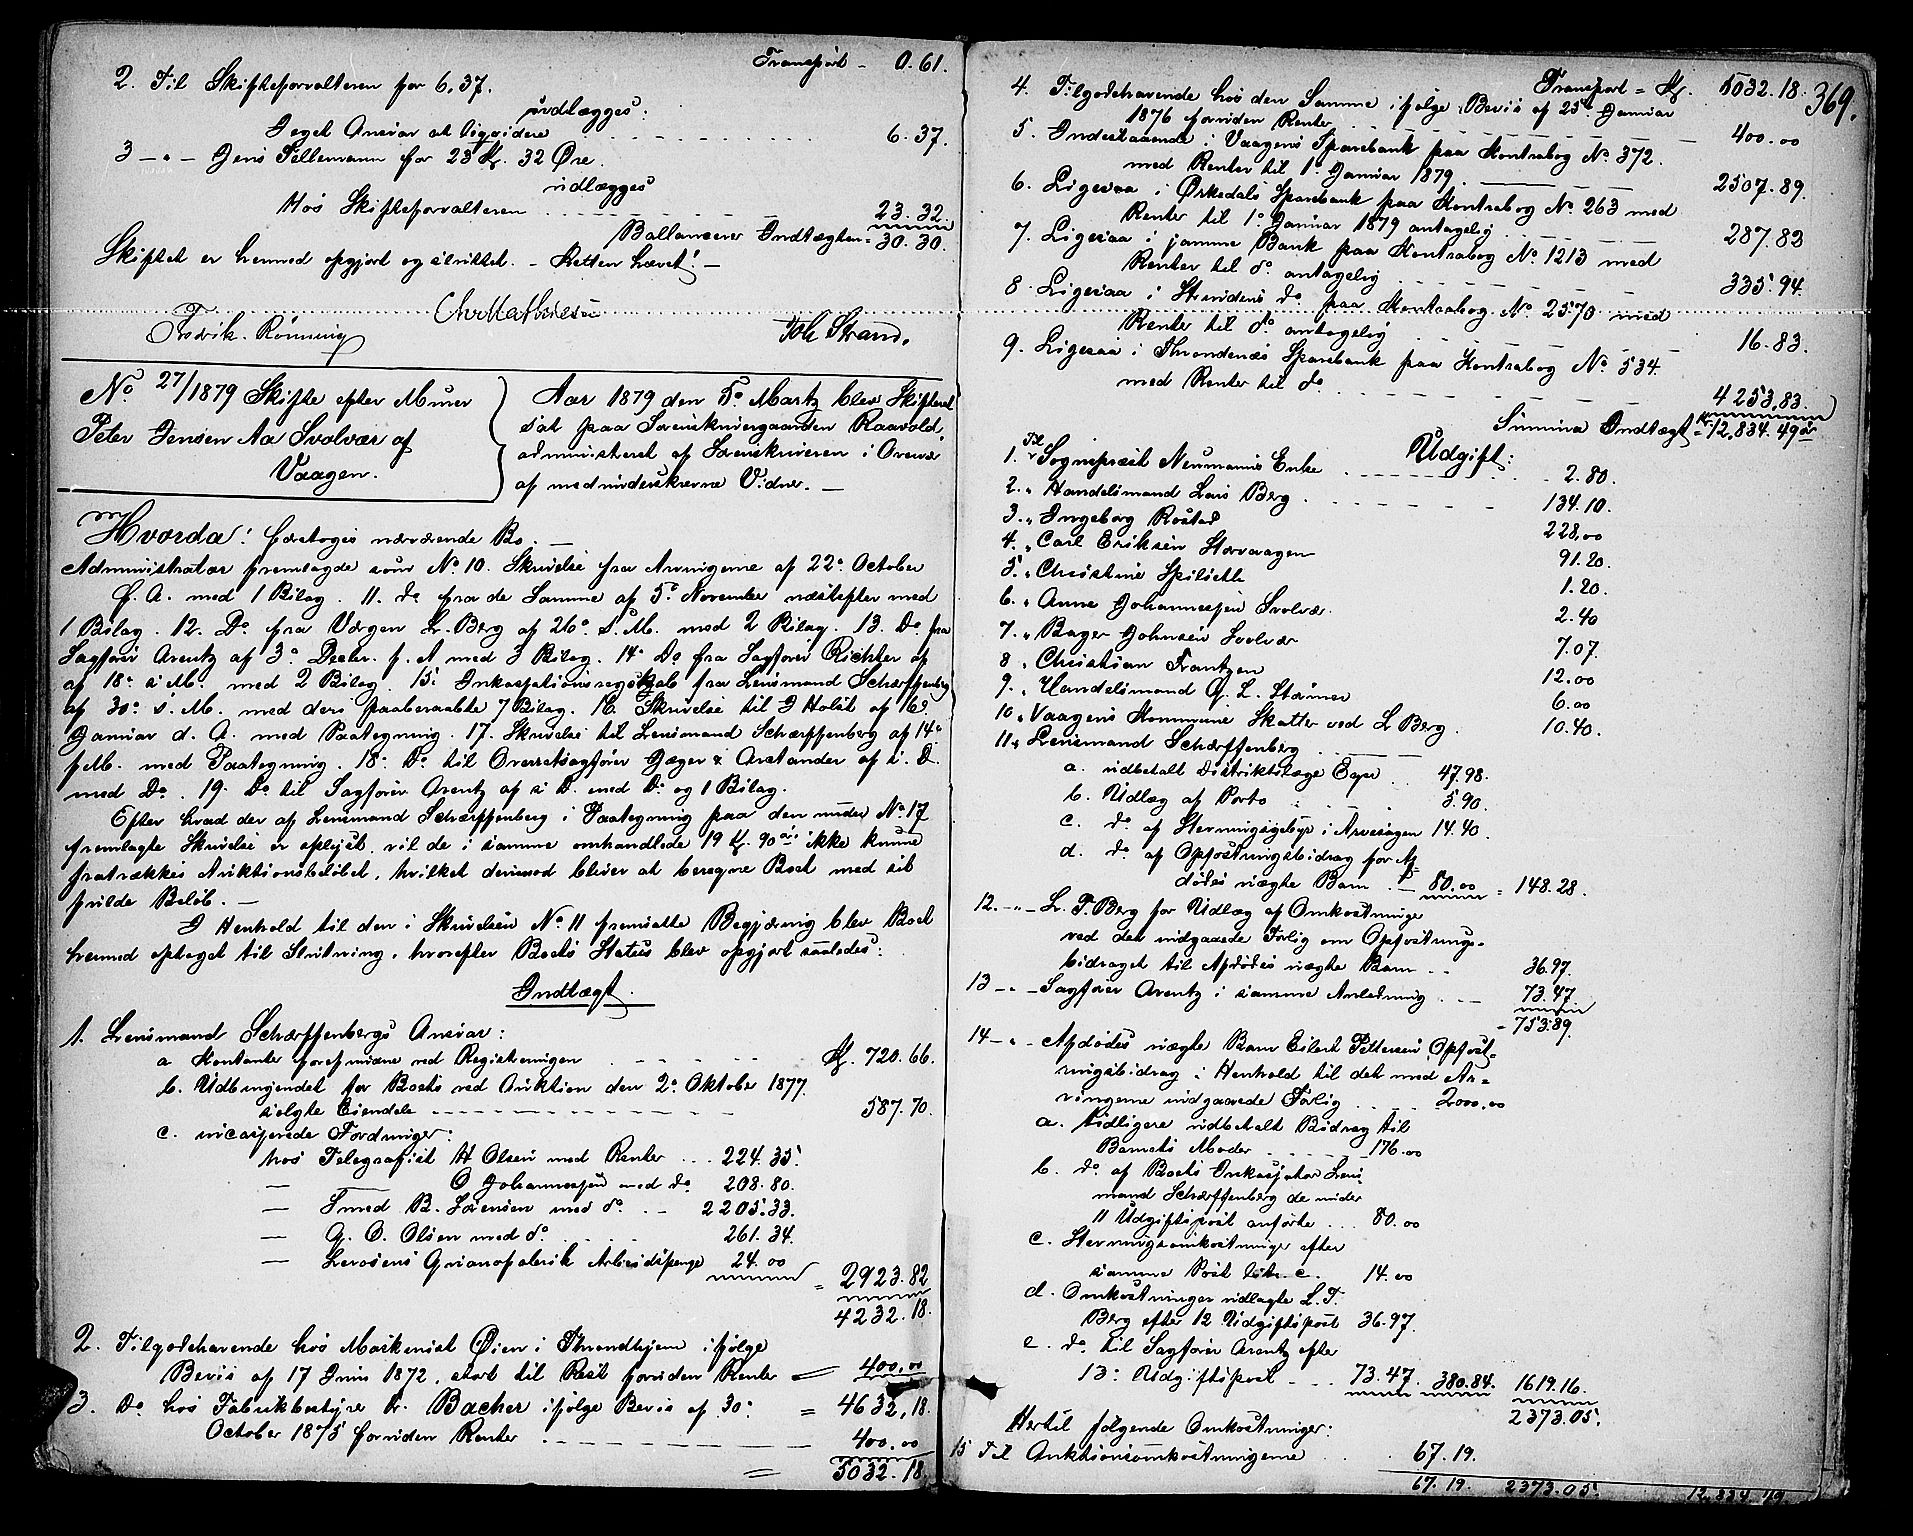 Transport - 0.61.
2. Til Skifteforvalteren for 6.37.
udlægges:
Eget Ansvar at liqvidere 6.37.
3 - " - Jens Tellemann for 23 Kr. 32 Øre.
udlægges
Hos Skifteforvalteren 23.32.
Ballancerer Indtægten = 30.30.
Skiftet er hermed opgjort og sluttet. - Retten hævet! -
Chr Mathiesen
Fredrik Rønning Joh Strand.
No 27/1879 Skifte efter Murer
Peter Jensen Aa Svolvær af
Vaagen.
Aar 1879 den 5te Martz blev Skifteret
sat paa Sorenskrivergaarden Raavold,
administreret af Sorenskriveren i Overvær
af medunderskrevne Vidner. -
Hvorda: foretoges nærværende Bo. -
Administrator fremlagde som No 10. Skrivelse fra Arvingerne af 22de October
f. A. med 1 Bilag. 11. Do fra de Samme af 5te November næstefter med
1 Bilag. 12. Do fra Værgen L. Berg af 26de s. M. med 2 Bilag. 13. Do fra
Sagfører Arentz af 3de Decbr. f. A med 3 Bilag. 14de Do fra Sagfører Richter af
af 18de s M. med 2 Bilag. 15. Inkassationsregnskab fra Lensmand Schærffenberg
af 30te s. M. med deri paaberaabte 7 Bilag. 16. Skrivelse til J Holst af 16de
Januar d. A. med Paategning. 17. Skrivelse til Lensmand Schærffenberg af 14de
f. M. med Paategning. 18. Do til Overretssagfører Jæger & Arctander af s. D.
med Do. 19. Do til Sagfører Arentz af s D. med Do og 1 Bilag.
Efter hvad der af Lensmand Schærffenberg i Paategning paa den under No 17
fremlagte Skrivelse er oplyst, vil de i samme omhandlede 19 Kr. 90 øre ikke kunne
fratrækkes Auktionsbeløbet, hvilket derimod bliver at beregne Boet med sit
fulde Beløb. -
I Henhold til den i Skrivelsen No 11 fremsatte Begjæring blev Boet
hermed optaget til Slutning, hvorefter Boets Status blev opgjort saaledes:
Indtægt.
1. Lensmand Schærffenbergs Ansvar:
a Kontanter forefundne ved Registreringen Kr. 720.66.
b. Udbringendet for Boets ved Auktion den 2de Oktober 1877
solgte Eiendele 587.70.
c. incasserede Fordringer:
hos Telegrafist H Olsen med Renter 224.35.
— O Johannessen med do 208.80.
— Smed B. Sørensen med do. 2205.33.
— G. O. Olsen med do 261.34.
— Guanofabrik Arbeidspenge 24.00
= 2923.82
4232.18.
2. Tilgodehavende hos Maskinist Øien i Throndhjem ifølge
Bevis af 17 Juni 1872, stort til Rest foruden Renter = 400.00
3. Do hos Fabrikbestyrer Bacher ifølge Bevis af 30te = 4632.18.
October 1875 foruden Renter 400.00
= 5032.18
Transport = Kr. 5032.18. 369.
4. Tilgodehavende hos den Samme ifølge Bevis af 25de Januar
1876 foruden Renter 400.00
5. Indestaaende i Vaagens Sparebank paa Kontrabog No. 372.
med Renter til 1te Januar 1879. 2507.89.
6. Ligesaa i Ørkedals Sparebank paa Kontrabog No. 263 med
Renter til 1te Januar 1879 antagelig 287.82
7. Ligesaa i samme Bank paa Kontrabog No. 1213 med
Renter til do antagelig 335.94.
8. Ligesaa i Strindens do paa Kontrabog No 2570 med
Renter til do antagelig 16.83.
9. Ligesaa i Throndenæs Sparebank paa Kontrabog No 534.
med Renter til do 4253.83.
Summa Indtægt = Kr 12,834.49 ør
Udgift:
1. Til Sogneprest Neumanns Enke 2.80.
2. " Handelsmand Lars Berg 134.10.
3. " Ingeborg Rostad 228.00
4. " Carl Eriksen Storvaagen 91.20.
5. " Christine 1.20.
6. " Anne Johannessen Svolvær 2.40
7. " Bager Johnsen Svolvær 7.07.
8 " Christian Frantzen 12.00
9. " Handelsmand G. L. Størmer 6.00
10. " Vaagens Kommune Skatter ved L Berg 10.40.
11. " Lensmand Schærffenberg
a. udbetalt Distriktslæge 47.98.
b. Udlæg af Porto 5.90.
c. do af Stevningsgebyr i Arvesagen 14.40.
d. do af Opfostringsbidrag for Af-
dødes uægte Barn 80.00 = 148.28.
12. - " - L. T. Berg for Udlæg af Omkostninger
ved det indgaaede Forlig om Opfostrings-
bidraget til Afdødes uægte Barn 36.97.
13 - " - Sagfører Arentz i samme Anledning 73.47.
= 753.89.
14 - " - Afdødes uægte Barn Eilert Pettersen Opfost-
ringsbidrag i Henhold til det med Ar-
vingerne indgaaede Forlig 2000.00
a. tidligere udbetalt Bidrag til
Barnets Moder 176.00
b. do af Boets Inkassator Lens-
mand Schærffenberg de under
11 Udgiftspost anførte 80.00
c. Stevningsomkostninger efter
samme Post Litr. c. 14.00
d. Omkostninger udlagte L. T.
Berg efter 12 Udgiftspost 36.97.
e. do til Sagfører Arentz efter
13de Udgiftspost 73.47. 380.84. 1619.16.
2373.05.
Hertil følgende Omkostninger:
15 Til Auktionsomkostningerne 67.19.
67.19. 2373.05. 12,834.49